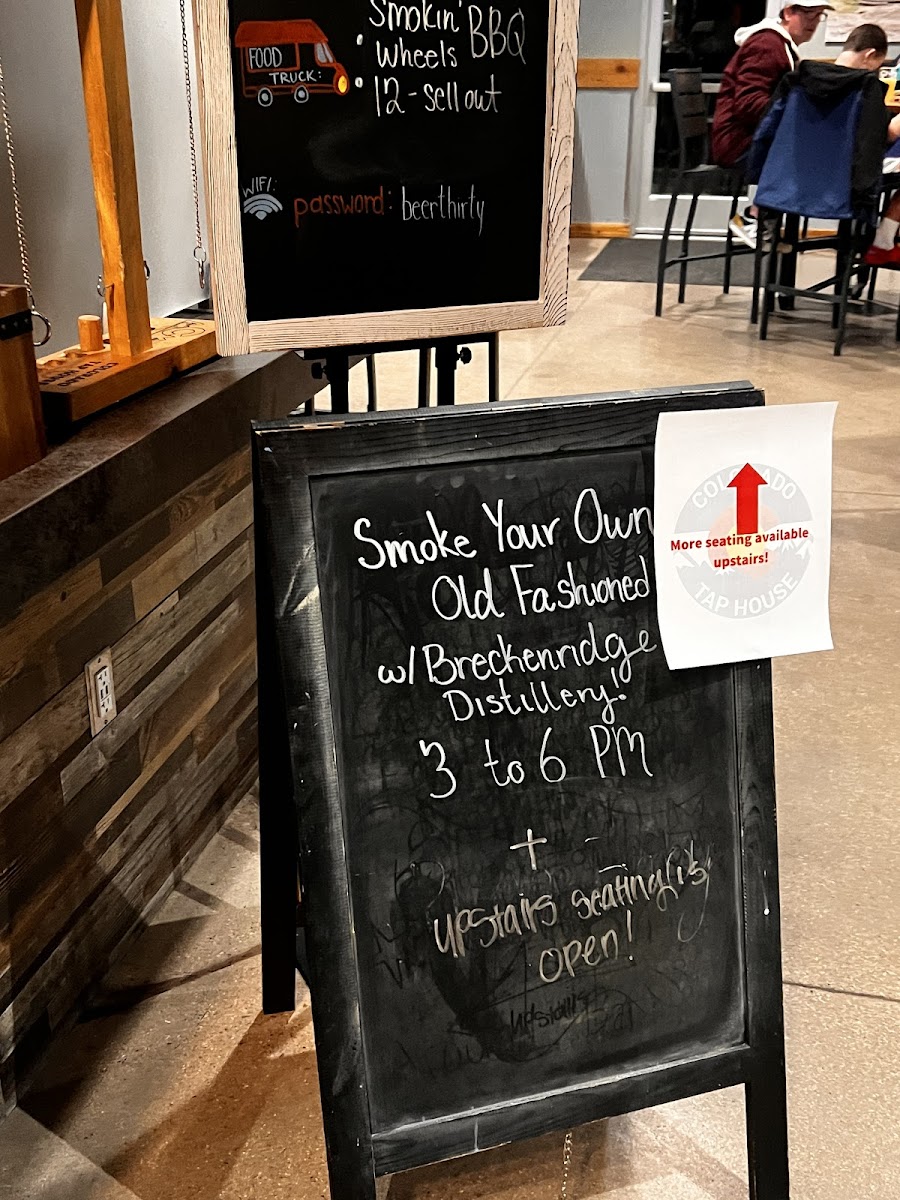 Smokin'
Wheels BBQ
FOOD
TRUCK:
12 - sell out
WIFI:
password: beerthirty
Smoke Your Own
Old Fashioned
w/ Breckenridge
Distillery!
3 to 6 PM
+
upstairs seating is
open!
upstairs
COLORADO
More seating available
upstairs!
TAP HOUSE